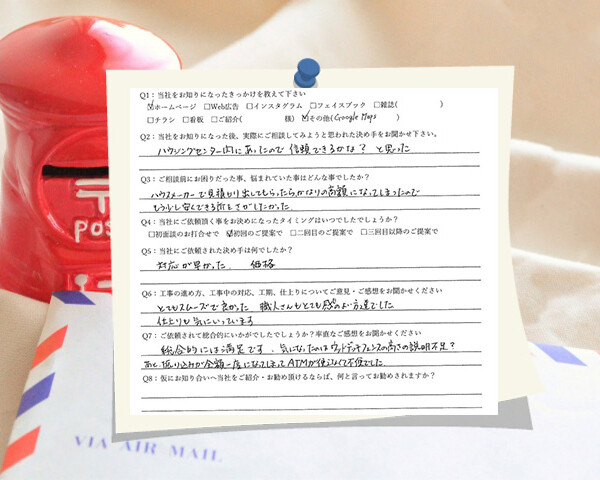 Q1：当社をお知りになったきっかけを教えて下さい
☑ホームページ □Web広告 □インスタグラム □フェイスブック □雑誌( )
□チラシ □看板 □ご紹介( 様) ☑その他(Google Maps )
Q2：当社をお知りになった後、実際にご相談してみようと思われた決め手をお聞かせ下さい。
ハウジングセンター内にあったので信頼できるかな？ と思った
Q3：ご相談前にお困りだった事、悩まれていた事はどんな事でしたか？
ハウスメーカーで見積り出してもらったらかなりの高額になってしまったので
もう少し安くできる所をさがしたかった
Q4：当社にご依頼頂く事をお決めになったタイミングはいつでしたでしょうか？
□初面談のお打合せで ☑初回のご提案で □二回目のご提案で □三回目以降のご提案で
Q5：当社にご依頼された決め手は何でしたか？
対応が早かった 価格
Q6：工事の進め方、工事中の対応、工期、仕上りについてご意見・ご感想をお聞かせください
とてもスムーズで良かった 職人さんもとても感じのよい方達でした
仕上りも気にいっています
Q7：ご依頼されて総合的にいかがでしたでしょうか？率直なご感想をお聞かせください
総合的には満足です。気になったのはウッドデッキフェンスの高さの説明不足？
あと、振り込みが全額一度になってしまってATMが使えなくて不便でした
Q8：仮にお知り合いへ当社をご紹介・お勧め頂けるならば、何と言ってお勧めされますか？
〒
POS
VIA AIR MAIL